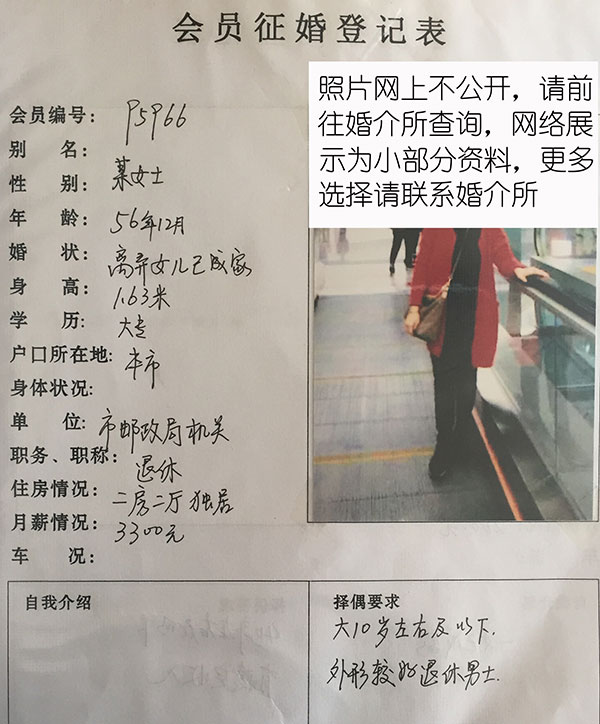 会员征婚登记表
照片网上不公开，请前
往婚介所查询，网络展
示为小部分资料，更多
选择请联系婚介所
会员编号： P5966
别 名：
性 别： 某女士
年 龄： 56年12月
婚 状： 离弃女儿已成家
身 高： 1.63米
学 历： 大专
户口所在地： 本市
身体状况：
单 位： 市邮政局机关
职务、职称： 退休
住房情况： 二房二厅 独居
月薪情况： 3300元
车 况：
自我介绍
择偶要求
大10岁左右及以下.
外形较好退休男士.